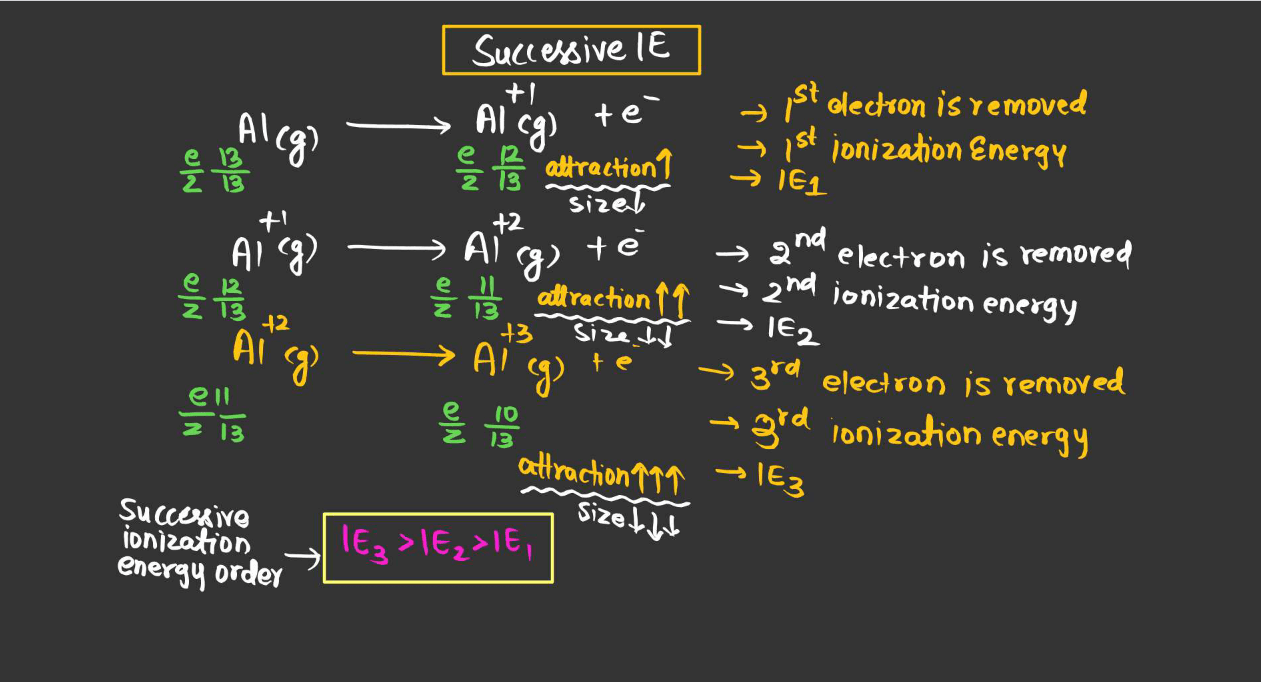 Successive IE
Al(g) → Al⁺¹(g) + e⁻ → 1st electron is removed
e/z 13/13 e/z 12/13 attraction↑ → 1st ionization Energy
size↓ → IE₁
Al⁺¹(g) → Al⁺²(g) + e⁻ → 2nd electron is removed
e/z 12/13 e/z 11/13 attraction↑↑ → 2nd ionization energy
size↓↓ → IE₂
Al⁺²(g) → Al⁺³(g) + e⁻ → 3rd electron is removed
e/z 11/13 e/z 10/13 → 3rd ionization energy
attraction↑↑↑ → IE₃
size↓↓↓
Successive
ionization
energy order → IE₃ > IE₂ > IE₁